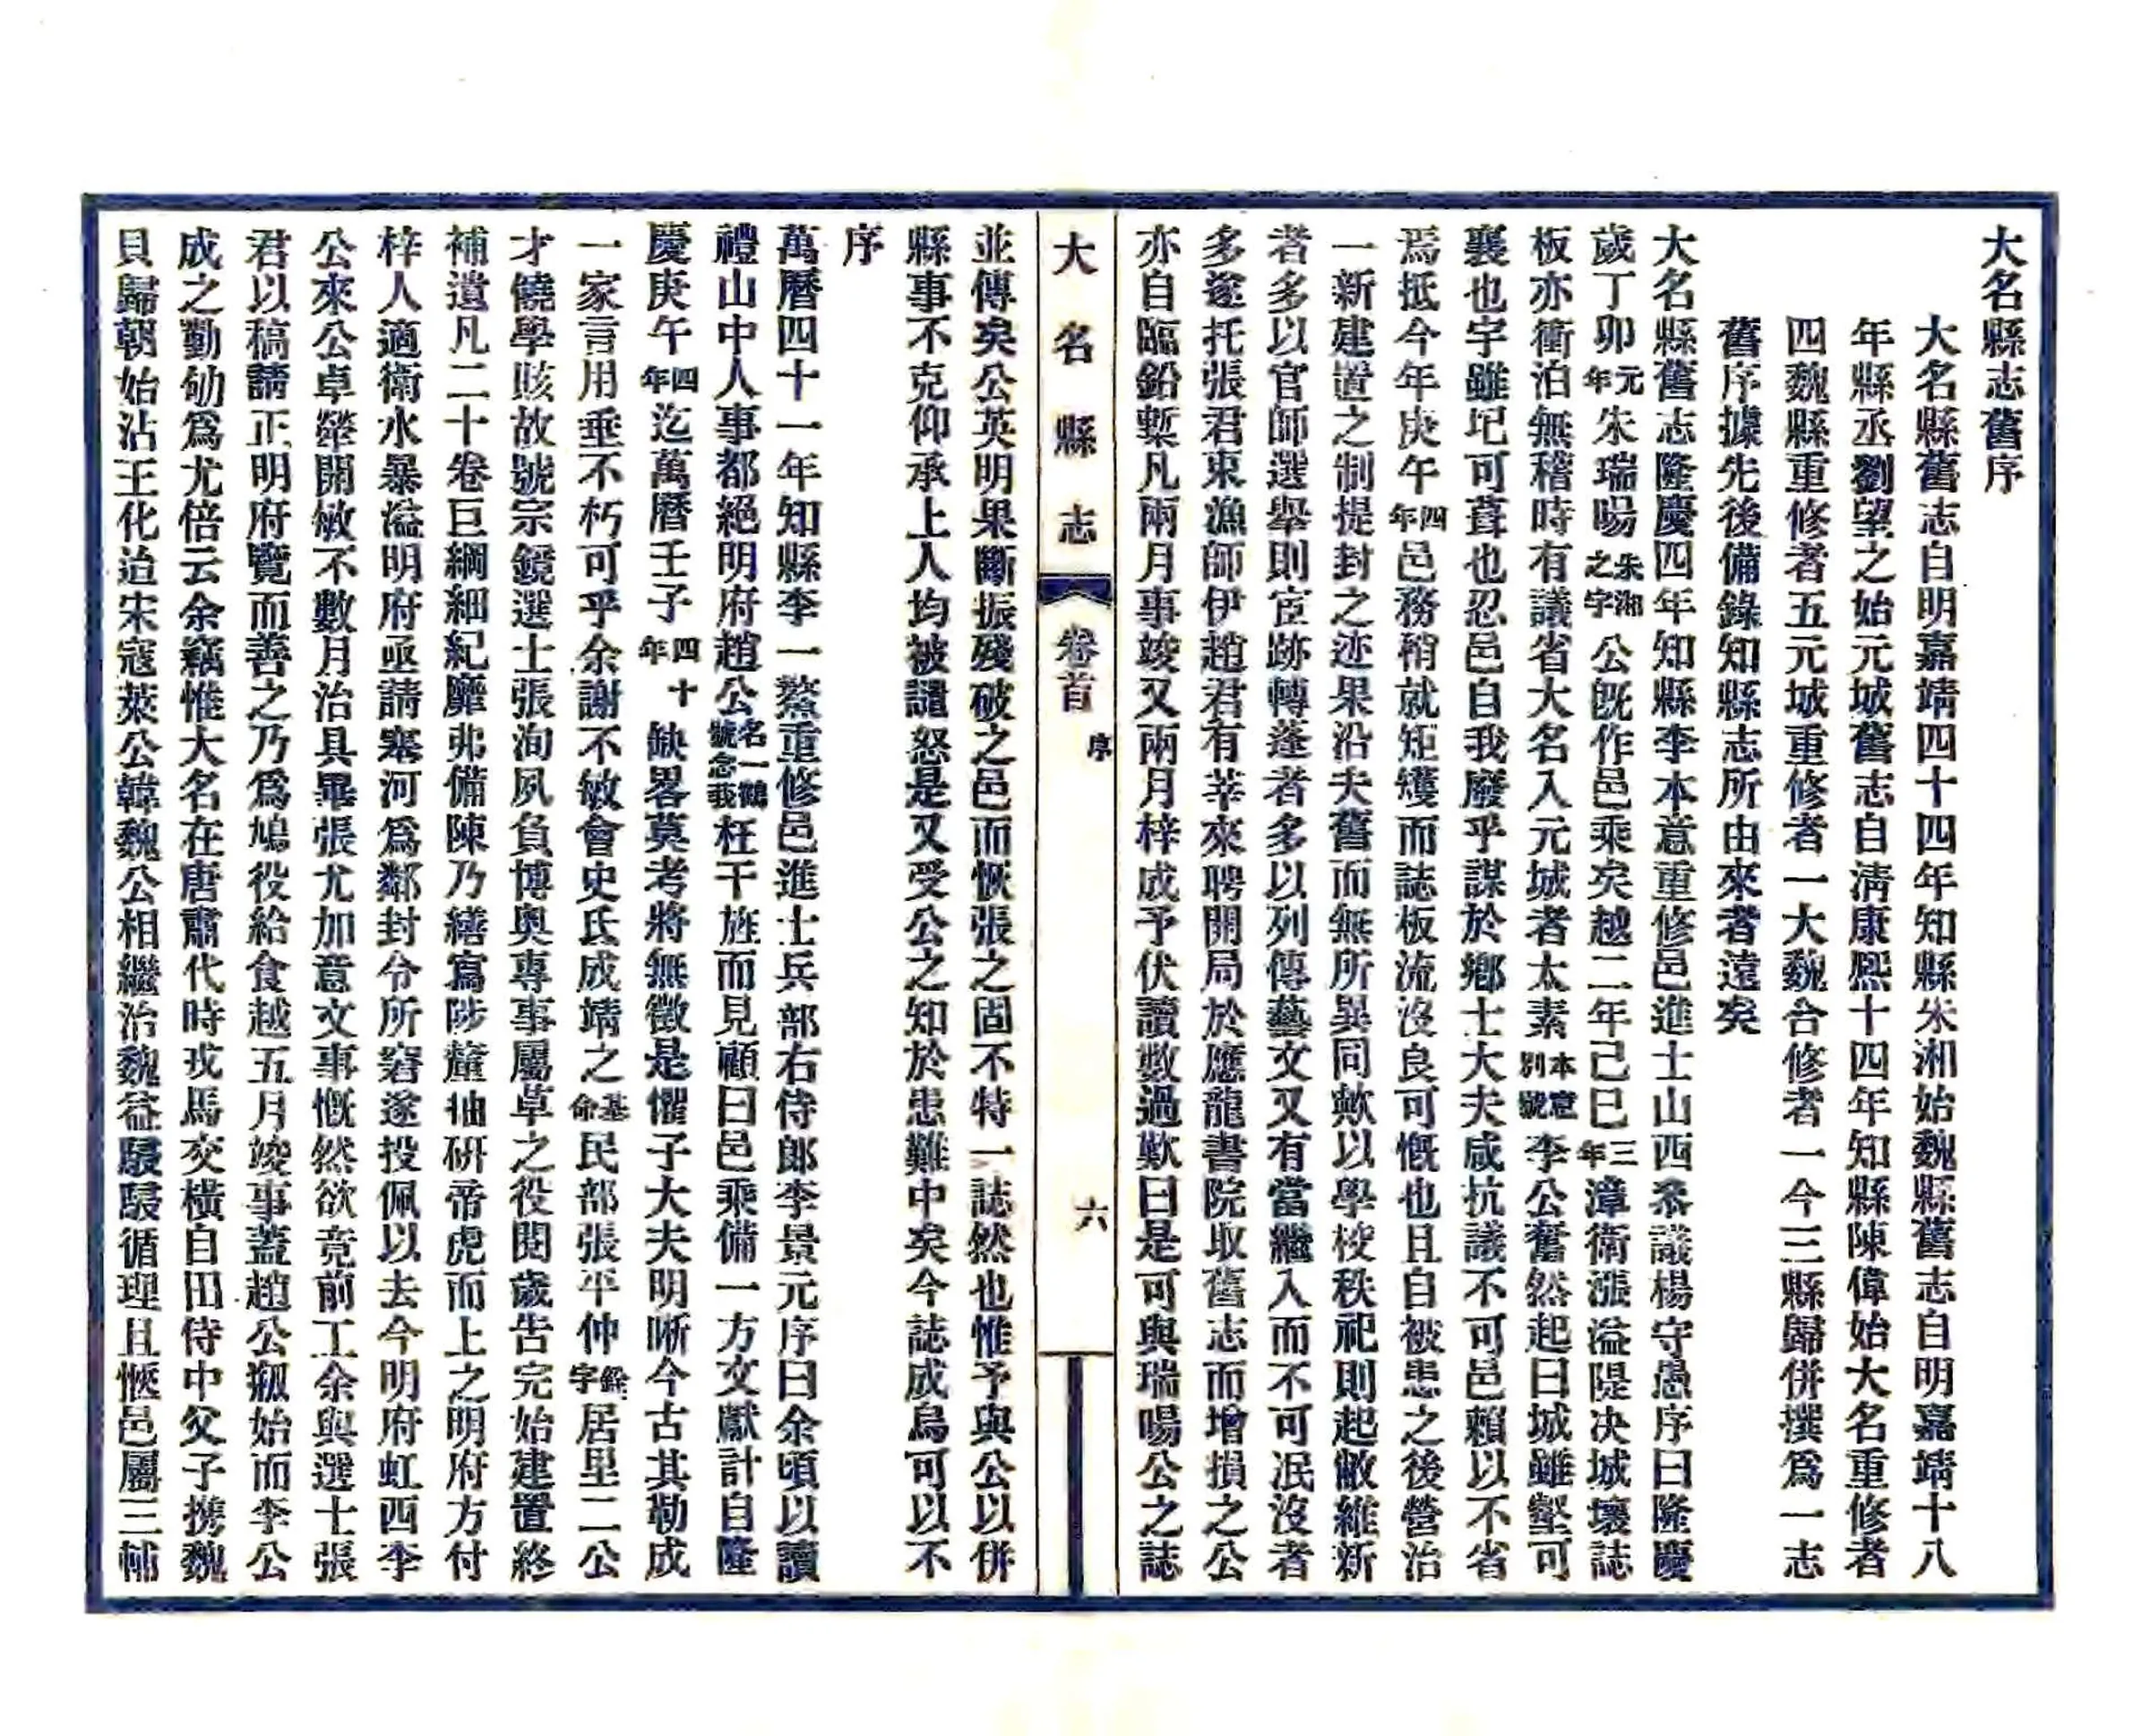 大名縣志舊序
大名縣舊志自明嘉靖四十四年知縣朱湘始魏縣舊志自明嘉靖十八
年縣丞劉望之始元城舊志自淸康熙十四年知縣陳偉始大名重修者
四魏縣重修者五元城重修者一大魏合修者一今三縣歸併撰爲一志
舊序據先後備錄知縣志所由來者遠矣
大名縣舊志隆慶四年知縣李本意重修邑進士山西叅議楊守愚序曰隆慶
歲丁卯元年朱瑞暘朱湘之字公旣作邑乘矣越二年己巳三年漳衛漲溢隄决城壞誌
板亦衝泊無稽時有議省大名入元城者太素本意別號李公奮然起曰城雖壑可
襄也宇雖圮可葺也忍邑自我廢乎謀於鄉士大夫咸抗議不可邑賴以不省
焉抵今年庚午四年邑務稍就矩矱而誌板流沒良可慨也且自被患之後營治
一新建置之制提封之迹果沿夫舊而無所異同歟以學校秩祀則起敝維新
者多以官師選舉則宦跡轉蓬者多以列傳藝文又有當繼入而不可泯沒者
多遂托張君東漁師伊趙君有莘來聘開局於應龍書院取舊志而增損之公
亦自臨鉛槧凡兩月事竣又兩月梓成予伏讀數過歎曰是可與瑞暘公之誌
大名縣志 卷首 序 六
並傳矣公英明果斷振殘破之邑而恢張之固不特一誌然也惟予與公以併
縣事不克仰承上人均被譴怒是又受公之知於患難中矣今誌成烏可以不
序
萬曆四十一年知縣李一鰲重修邑進士兵部右侍郎李景元序曰余頃以讀
禮山中人事都絕明府趙公名一鶴號念莪枉干旌而見顧曰邑乘備一方文獻計自隆
慶庚午四年迄萬曆壬子四十年缺畧莫考將無徵是懼子大夫明晰今古其勒成
一家言用垂不朽可乎余謝不敏會史氏成靖之基命民部張平仲銓字居里二公
才饒學賅故號宗鏡選士張洵夙負博奥專事屬草之役閱歲告完始建置終
補遺凡二十卷巨綱細紀靡弗備陳乃繕寫陟釐抽硏帝虎而上之明府方付
梓人適衛水暴溢明府亟請塞河爲鄰封令所窘遂投佩以去今明府虹西李
公來公卓犖開敏不數月治具畢張尤加意文事慨然欲竟前工余與選士張
君以稿請正明府覽而善之乃爲鳩役給食越五月竣事蓋趙公剏始而李公
成之勤劬爲尤倍云余竊惟大名在唐肅代時戎馬交橫自田侍中父子携魏
貝歸朝始沾王化迨宋寇萊公韓魏公相繼治魏益駸駸循理且恢邑屬三輔